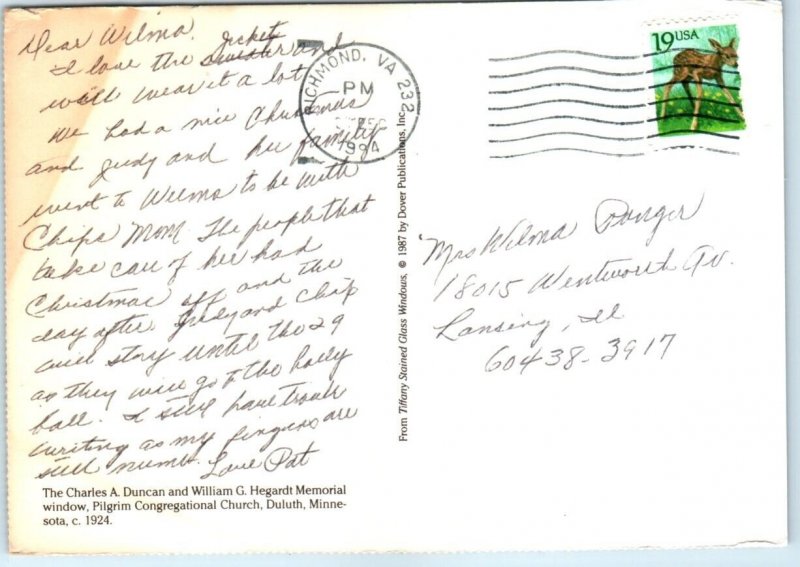 Dear Wilma,
jacket
I love the sweater and
will wear it a lot
We had a nice Christmas
and Judy and her family
went to Wilma to be with
Chips Mom. The people that
take care of her had
Christmas off and the
day after Judy and Chip
will stay until the 29
as they will go to the holly
ball. I still have trouble
writing as my fingers are
still numb. Love Pat
The Charles A. Duncan and William G. Hegardt Memorial
window, Pilgrim Congregational Church, Duluth, Minne-
sota, c. 1924.
From Tiffany Stained Glass Windows, © 1987 by Dover Publications, Inc.
RICHMOND, VA 232
PM
1994
19USA
Mrs Wilma
18015 Wentworth Av.
Lansing, Il
60438-3917